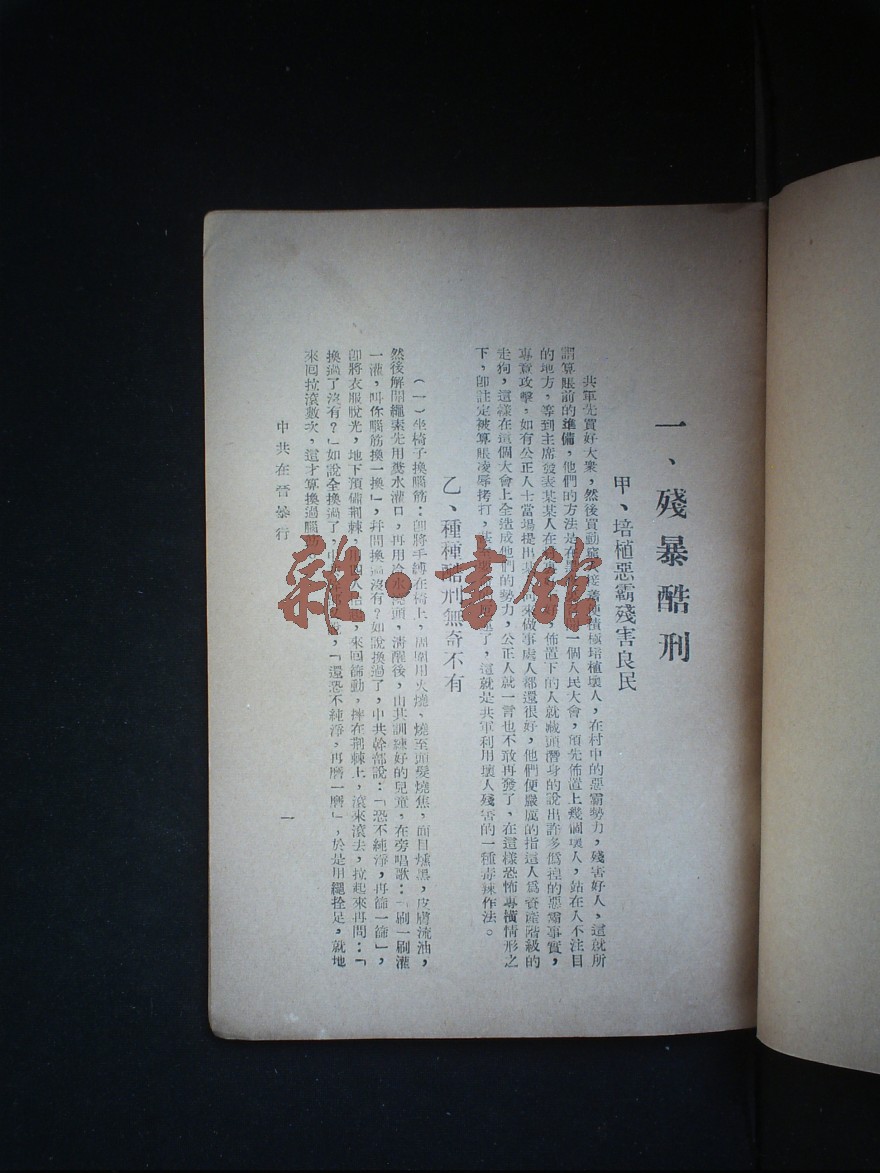 一、殘暴酷刑
甲、培植惡霸殘害良民
共軍先買好大衆，然後買動竄接着便積極培植壞人，在村中的惡霸勢力，殘害好人，這就所
謂算賬前的準備，他們的方法是在一個人民大會，預先佈置上幾個壞人，站在人不注目
的地方，等到主席發表某某人在佈置下的人就藏頭潛身的說出許多僞捏的惡霸事實，
專意攻擊，如有公正人士當場提出來做事處人都還很好，他們便嚴厲的指這人爲資產階級的
走狗，這樣在這個大會上全造成他們的勢力，公正人就一言也不敢再發了，在這樣恐怖專橫情形之
下，卽註定被算賬凌辱拷打，了，這就是共軍利用壞人殘害的一種毒辣作法。
乙、種種酷刑無奇不有
（一）坐椅子換腦筋：卽將手縛在椅上，周圍用火燒、燒至頭髮燒焦，面目燻黑，皮膚流油，
然後解開繩索先用糞水灌口，再用冷水澆頭，淸醒後，由共訓練好的兒童，在旁唱歌：「刷一刷灌
一灌，叫你腦筋換一換」，幷問換過沒有？如說換過了，中共幹部說：「恐不純淨，再篩一篩」，
卽將衣服脫光，地下預備荊棘，用四人抬，來回篩動，摔在荊棘上，滾來滾去，拉起來再問：「
換過了沒有？」如說全換過了，中說，「還恐不純淨，再磨一磨」，於是用繩拴足，就地
來回拉滾數次，這才算換過腦筋
中共在晉暴行
一
雜·書館